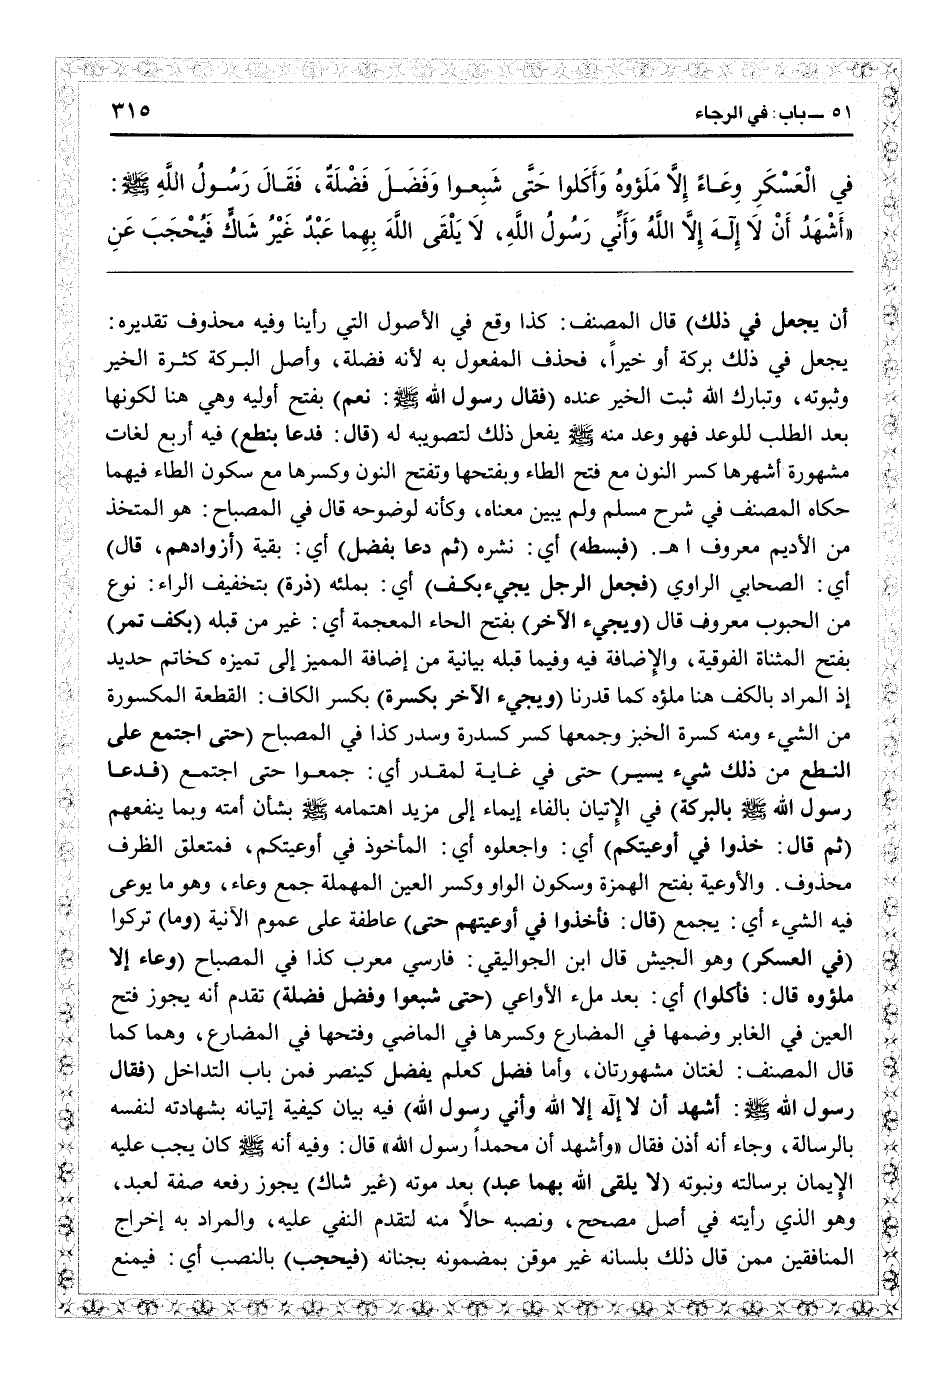 ٥١ ــ باب: في الرجاء ٣١٥
في الْعَسْكَرِ وِعَاءً إِلَّا مَلَؤوهُ وَأَكَلوا حَتَّى شَبِعوا وَفَضَلَ فَضْلَةٌ، فَقَالَ رَسُولُ اللَّهِ ﷺ:
«أَشْهَدُ أَنْ لَا إِلَـهَ إِلَّا اللَّهُ وَأَنِّي رَسُولُ اللَّهِ، لَا يَلْقَى اللَّهَ بِهِما عَبْدٌ غَيْرُ شَاكٍّ فَيُحْجَبَ عَنِ
أن يجعل في ذلك) قال المصنف: كذا وقع في الأصول التي رأينا وفيه محذوف تقديره:
يجعل في ذلك بركة أو خيراً، فحذف المفعول به لأنه فضلة، وأصل البركة كثرة الخير
وثبوته، وتبارك الله ثبت الخير عنده (فقال رسول الله ﷺ: نعم) بفتح أوليه وهي هنا لكونها
بعد الطلب للوعد فهو وعد منه ﷺ يفعل ذلك لتصويبه له (قال: فدعا بنطع) فيه أربع لغات
مشهورة أشهرها كسر النون مع فتح الطاء وبفتحها وتفتح النون وكسرها مع سكون الطاء فيهما
حكاه المصنف في شرح مسلم ولم يبين معناه، وكأنه لوضوحه قال في المصباح: هو المتخذ
من الأديم معروف اهـ. (فبسطه) أي: نشره (ثم دعا بفضل) أي: بقية (أزوادهم، قال)
أي: الصحابي الراوي (فجعل الرجل يجيء بكف) أي: بملئه (ذرة) بتخفيف الراء: نوع
من الحبوب معروف قال (ويجيء الآخر) بفتح الحاء المعجمة أي: غير من قبله (بكف تمر)
بفتح المثناة الفوقية، والإضافة فيه وفيما قبله بيانية من إضافة المميز إلى تميزه كخاتم حديد
إذ المراد بالكف هنا ملؤه كما قدرنا (ويجيء الآخر بكسرة) بكسر الكاف: القطعة المكسورة
من الشيء ومنه كسرة الخبز وجمعها كسر كسدرة وسدر كذا في المصباح (حتى اجتمع على
النطع من ذلك شيء يسير) حتى في غاية لمقدر أي: جمعوا حتى اجتمع (فدعا
رسول الله ﷺ بالبركة) في الإتيان بالفاء إيماء إلى مزيد اهتمامه ﷺ بشأن أمته وبما ينفعهم
(ثم قال: خذوا في أوعيتكم) أي: واجعلوه أي: المأخوذ في أوعيتكم، فمتعلق الظرف
محذوف. والأوعية بفتح الهمزة وسكون الواو وكسر العين المهملة جمع وعاء، وهو ما يوعى
فيه الشيء أي: يجمع (قال: فأخذوا في أوعيتهم حتى) عاطفة على عموم الآنية (وما) تركوا
(في العسكر) وهو الجيش قال ابن الجواليقي: فارسي معرب كذا في المصباح (وعاء إلا
ملؤوه قال: فأكلوا) أي: بعد ملء الأواعي (حتى شبعوا وفضل فضلة) تقدم أنه يجوز فتح
العين في الغابر وضمها في المضارع وكسرها في الماضي وفتحها في المضارع، وهما كما
قال المصنف: لغتان مشهورتان، وأما فضل كعلم يفضل كينصر فمن باب التداخل (فقال
رسول الله ﷺ: أشهد أن لا إلٰه إلا الله وأني رسول الله) فيه بيان كيفية إتيانه بشهادته لنفسه
بالرسالة، وجاء أنه أذن فقال «وأشهد أن محمداً رسول الله» قال: وفيه أنه ﷺ كان يجب عليه
الإيمان برسالته ونبوته (لا يلقى الله بهما عبد) بعد موته (غير شاك) يجوز رفعه صفة لعبد،
وهو الذي رأيته في أصل مصحح، ونصبه حالاً منه لتقدم النفي عليه، والمراد به إخراج
المنافقين ممن قال ذلك بلسانه غير موقن بمضمونه بجنانه (فيحجب) بالنصب أي: فيمنع